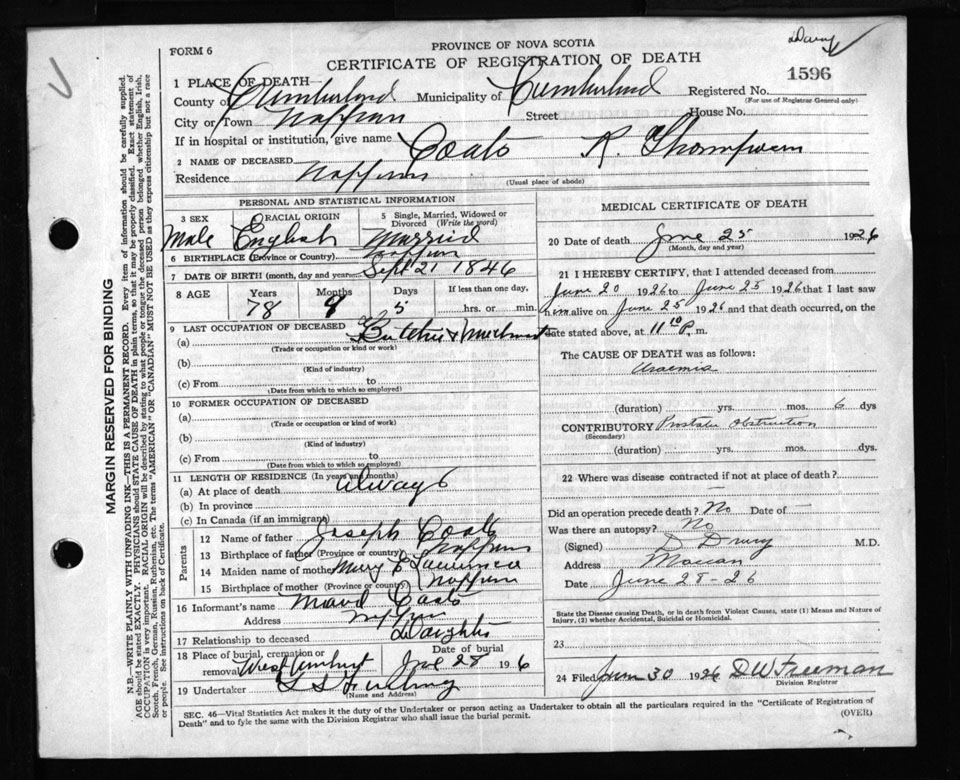 Drury
FORM 6
PROVINCE OF NOVA SCOTIA
CERTIFICATE OF REGISTRATION OF DEATH
1596
1 PLACE OF DEATH—
County of Cumberland Municipality of Cumberland Registered No.
(For use of Registrar General only)
City or Town Nappan Street House No.
If in hospital or institution, give name
2 NAME OF DECEASED Coats R. Thompson
Residence Nappan
(Usual place of abode)
PERSONAL AND STATISTICAL INFORMATION
3 SEX Male
RACIAL ORIGIN English
5 Single, Married, Widowed or Divorced (Write the word) Married
6 BIRTHPLACE (Province or Country) Nappan
7 DATE OF BIRTH (month, day and year) Sept 21 1846
8 AGE Years 78 Months 9 Days 5 If less than one day, hrs. or min.
9 LAST OCCUPATION OF DECEASED
(a) Butcher & Merchant
(Trade or occupation or kind or work)
(b)
(Kind of industry)
(c) From to
(Date from which to which so employed)
10 FORMER OCCUPATION OF DECEASED
(a)
(Trade or occupation or kind of work)
(b)
(Kind of industry)
(c) From to
(Date from which to which so employed)
11 LENGTH OF RESIDENCE (In years and months)
(a) At place of death always
(b) In province
(c) In Canada (if an immigrant)
Parents
12 Name of father Joseph Coats
13 Birthplace of father (Province or country) Nappan
14 Maiden name of mother Mary Lawrence
15 Birthplace of mother (Province or country) Nappan
16 Informant's name Maud Coats
Address Nappan
17 Relationship to deceased Daughter
18 Place of burial, cremation or removal West Amherst
Date of burial June 28 1926
19 Undertaker
(Name and Address)
MEDICAL CERTIFICATE OF DEATH
20 Date of death June 25 1926
(Month, day and year)
21 I HEREBY CERTIFY, that I attended deceased from
June 20 1926 to June 25 1926 that I last saw
him alive on June 25 1926 and that death occurred, on the
date stated above, at 11 10 P. m.
The CAUSE OF DEATH was as follows:
Uraemia
(duration) yrs. mos. 6 dys
CONTRIBUTORY Prostatic Obstruction
(Secondary)
(duration) yrs. mos. dys.
22 Where was disease contracted if not at place of death?
Did an operation precede death? No Date of —
Was there an autopsy? No
(Signed) D Drury M.D.
Address Maccan
Date June 28-26
State the Disease causing Death, or in death from Violent Causes, state (1) Means and Nature of
Injury, (2) whether Accidental, Suicidal or Homicidal.
23
24 Filed June 30 1926 D W Freeman
Division Registrar
SEC. 46—Vital Statistics Act makes it the duty of the Undertaker or person acting as Undertaker to obtain all the particulars required in the "Certificate of Registration of
Death" and to fyle the same with the Division Registrar who shall issue the burial permit.
(OVER)
MARGIN RESERVED FOR BINDING
N.B.—WRITE PLAINLY WITH UNFADING INK—THIS IS A PERMANENT RECORD. Every item of information should be carefully supplied.
AGE should be stated EXACTLY. PHYSICIANS should STATE CAUSE OF DEATH in plain terms, so that it may be properly classified. Exact statement of
OCCUPATION is very important. RACIAL ORIGIN will be described by stating to what people or tongue the deceased person belonged whether English, Irish,
Scotch, French, German, Russian, Ruthenian, etc. The terms "AMERICAN" or "CANADIAN" MUST NOT BE USED as they express citizenship but not a race
or people. See instructions on back of Certificate.